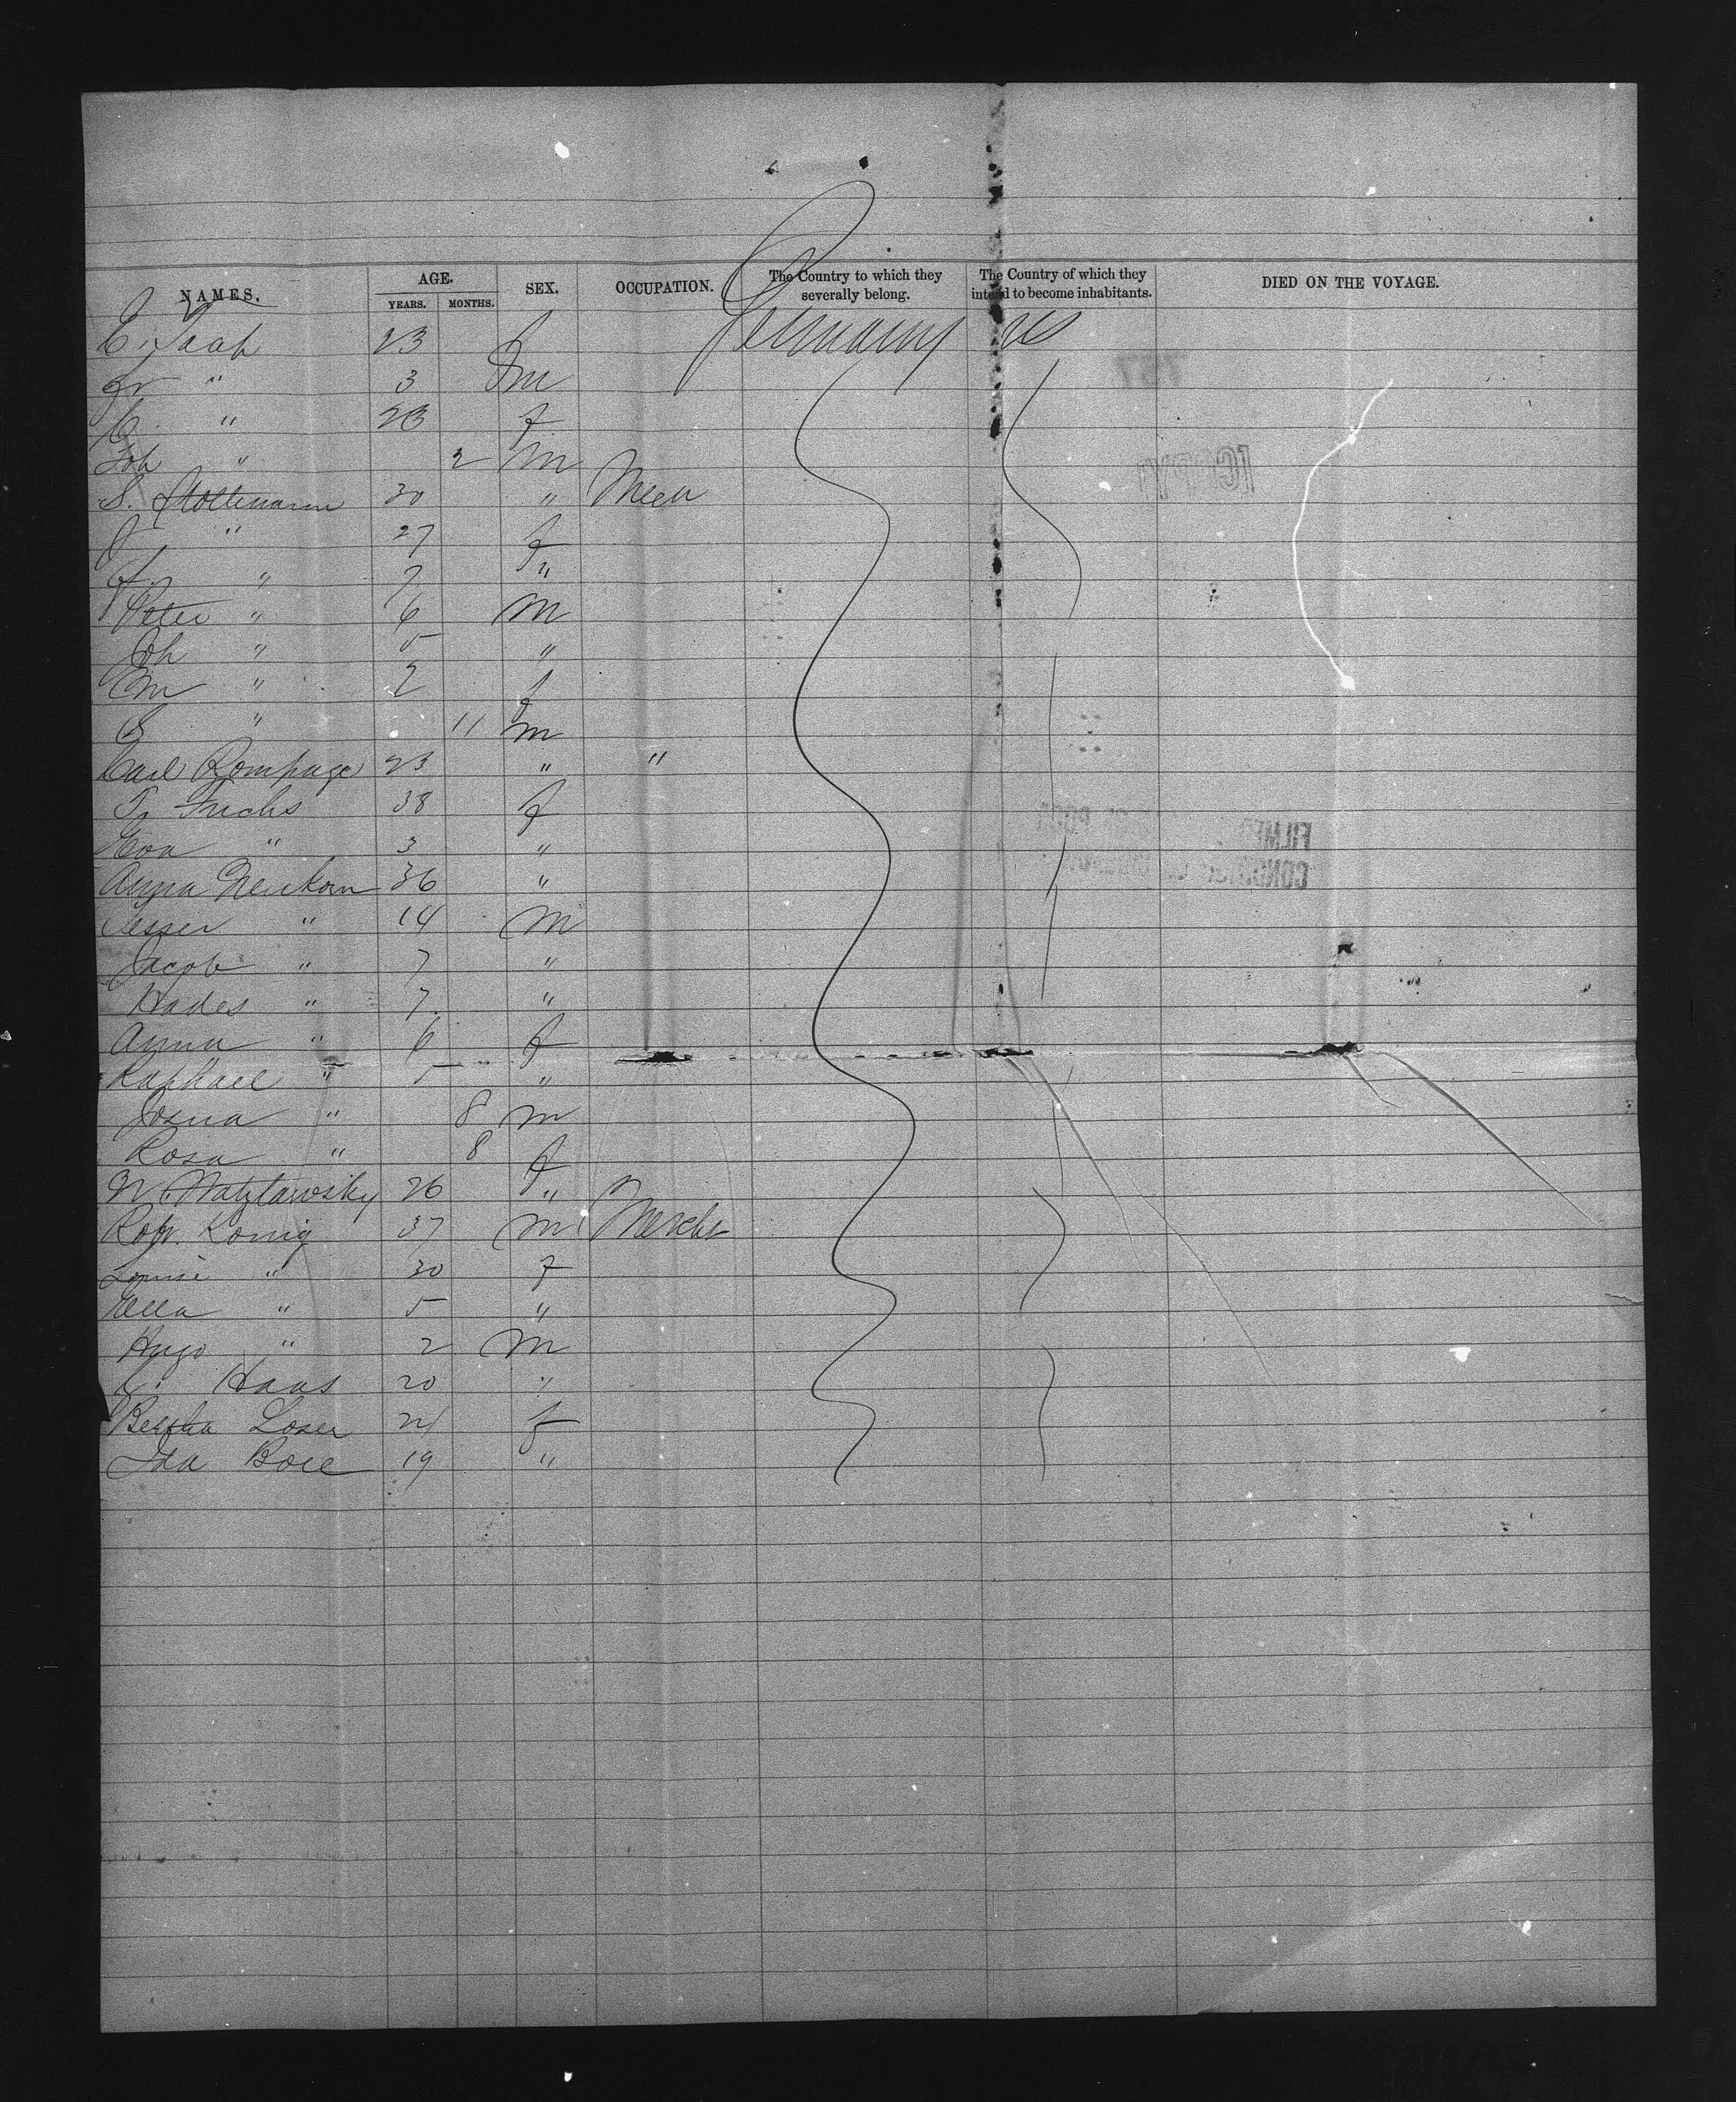 NAMES. AGE. YEARS. MONTHS. SEX. OCCUPATION. The Country to which they severally belong. The Country of which they intend to become inhabitants. DIED ON THE VOYAGE.
C. 23 f Germany US
Fr " 3 m
C. " 23 f
Joh " 2 m
S. 30 " Mech
J " 27 f
" 7 "
Peter " 6 m
Joh " 5 "
Em " 2 f
S " 11 m
Carl Rompage 23 " "
Fuchs 38 f
Eva " 3 "
Anna Neukorn 36 "
Lesser " 14 m
Jacob " 7 "
Hades " 7 "
Anna " 6 f
Raphael " 5 "
Josua " 8 m
Rosa " 8 f
26 "
Robt. König 37 m Mercht
Louise " 30 f
Ella " 5 "
Hugo " 2 m
C. Haas 20 "
Bertha Loser 21 f
Ida Boll 19 "